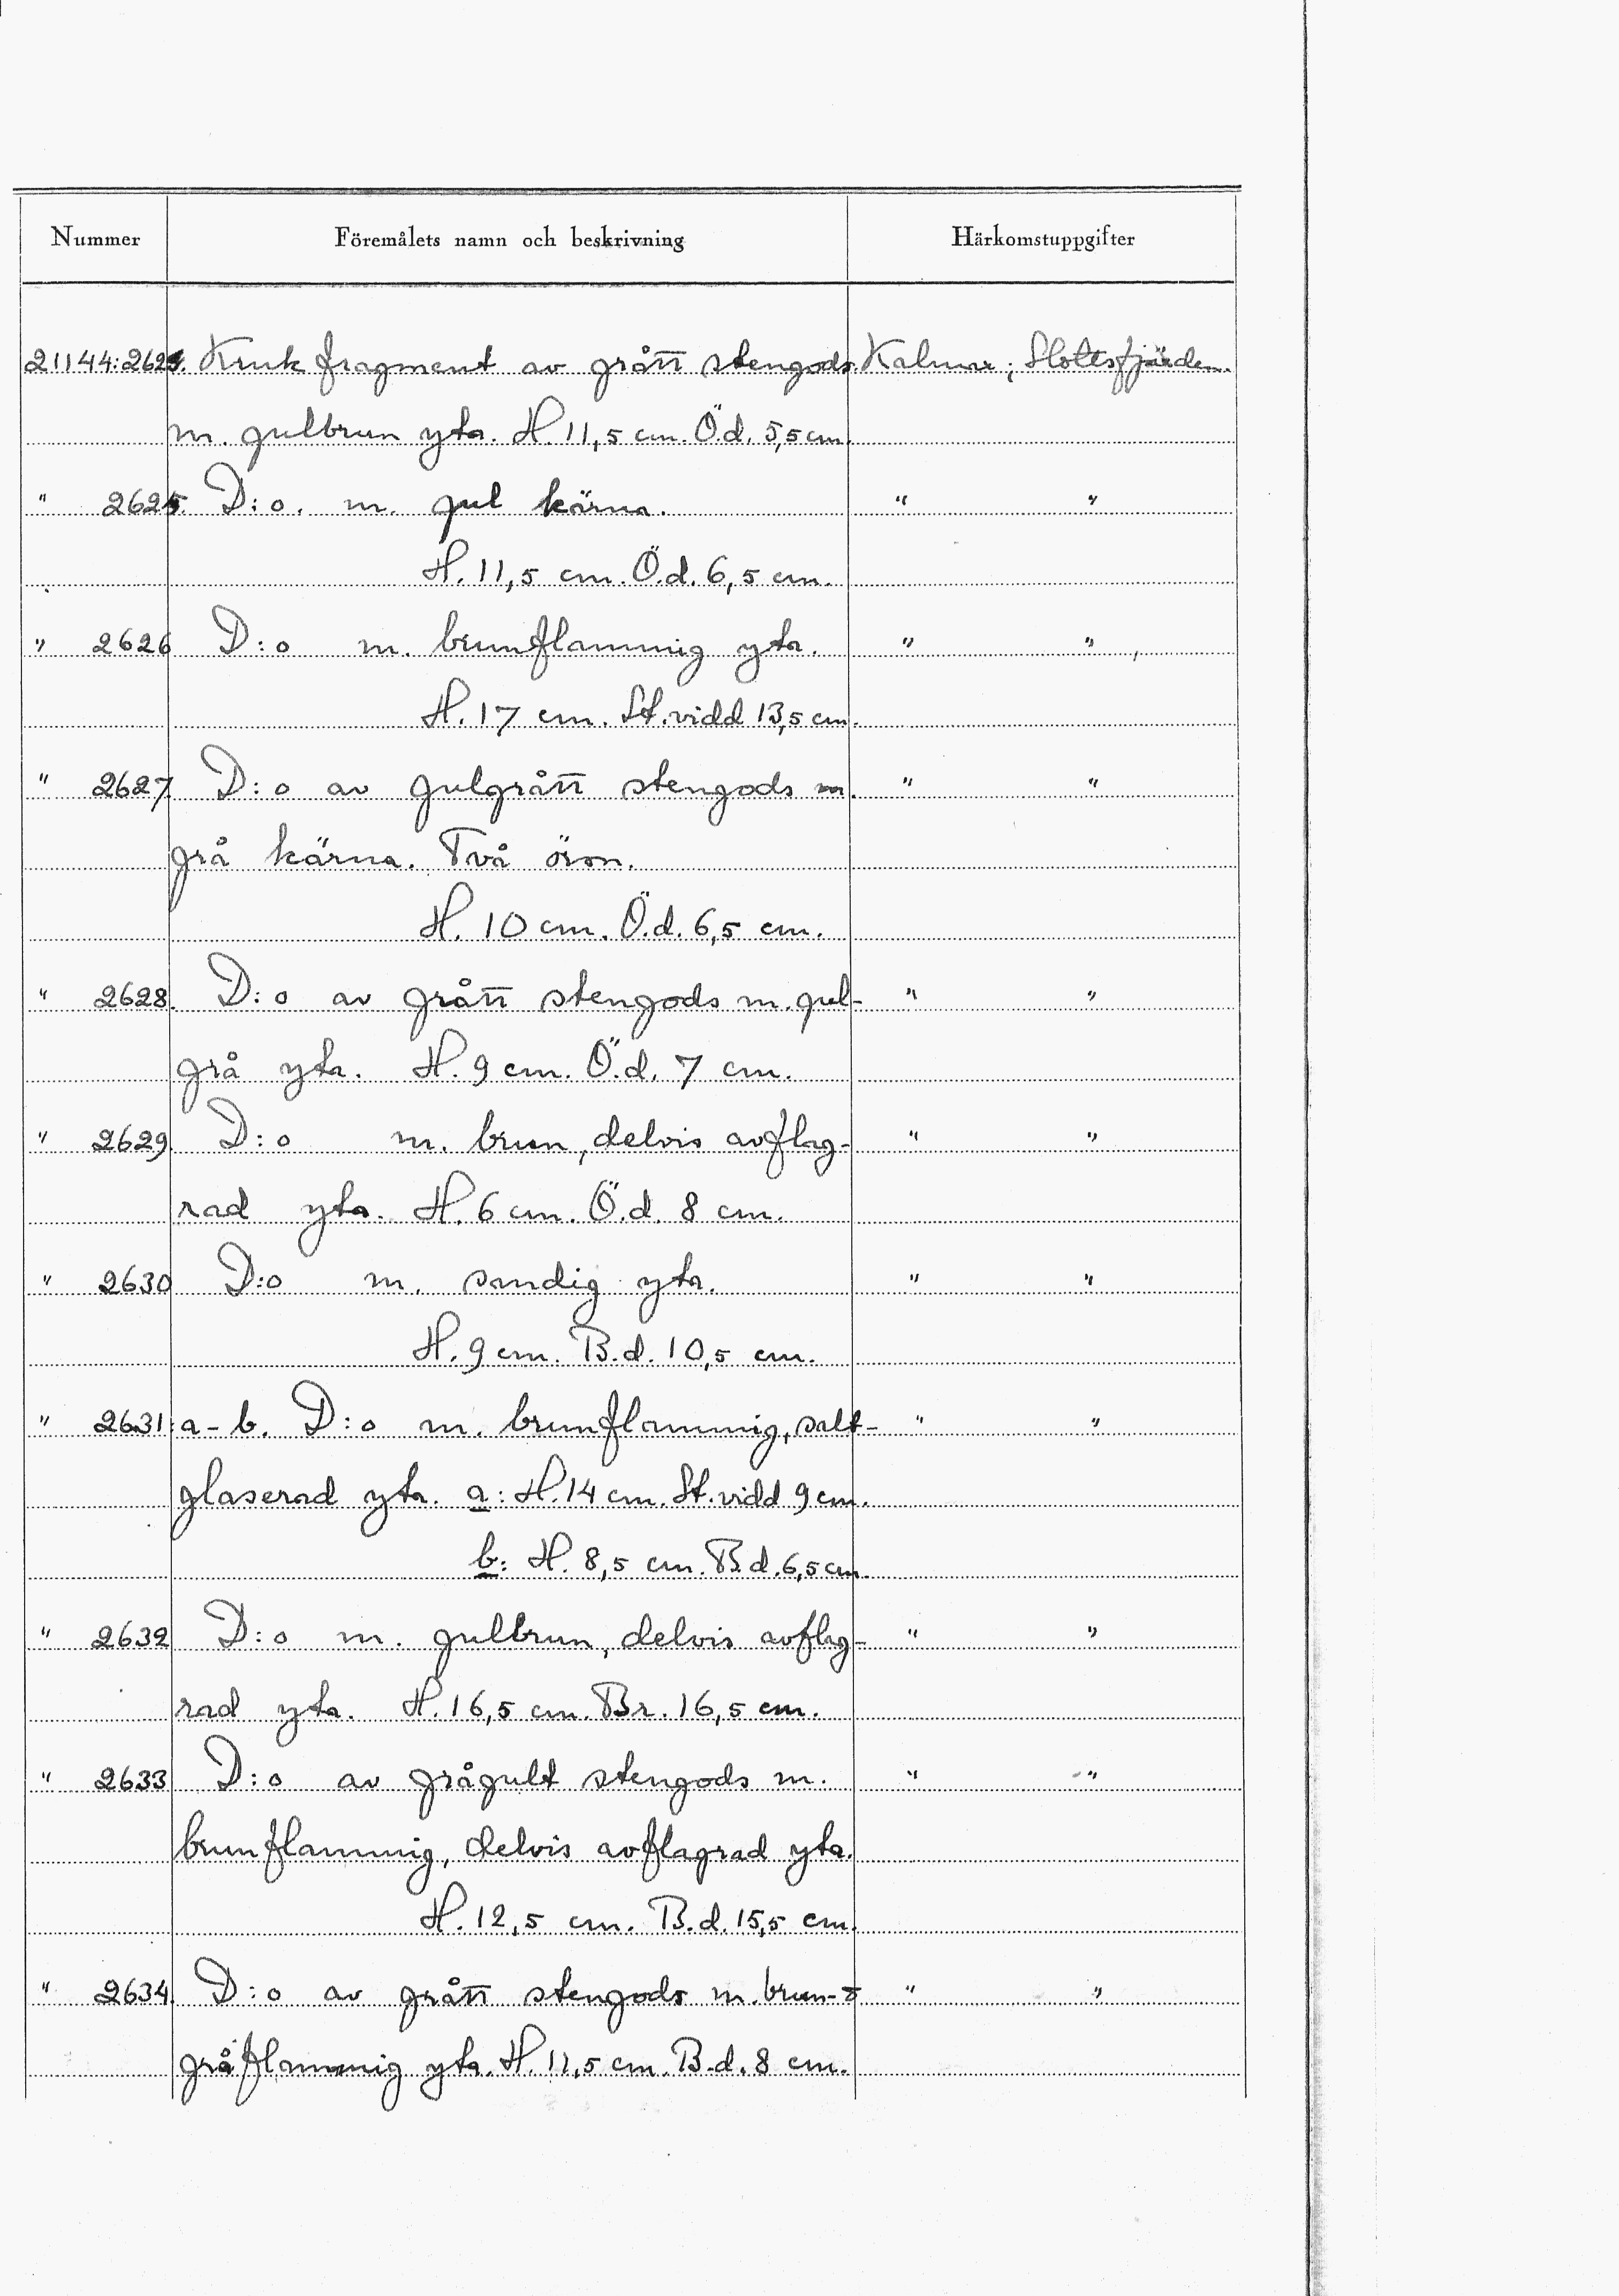 Nummer Föremålets namn och beskrivning Härkomstuppgifter
21144:2624. Krukfragment av grått stengods Kalmar; Slottsfjärden.
m. gulbrun yta. H. 11,5 cm. Ö.d. 5,5 cm.
" 2625. D:o. m. gul kärna. " "
H. 11,5 cm. Ö.d. 6,5 cm.
" 2626 D:o m. brunflammig yta. " "
H. 17 cm. St.vidd 13,5 cm.
" 2627. D:o av gulgrått stengods m. " "
grå kärna. Två öron.
H. 10 cm. Ö.d. 6,5 cm.
" 2628. D:o av grått stengods m. gul- " "
grå yta. H. 9 cm. Ö.d. 7 cm.
" 2629. D:o m. brun, delvis avflag- " "
rad yta. H. 6 cm. Ö.d. 8 cm.
" 2630 D:o m. sandig yta. " "
H. 9 cm. B.d. 10,5 cm.
" 2631:a-b. D:o m. brunflammig, salt- " "
glaserad yta. a: H. 14 cm. St.vidd 9 cm.
b: H. 8,5 cm. B.d. 6,5 cm.
" 2632 D:o m. gulbrun, delvis avflag- " "
rad yta. H. 16,5 cm. Br. 16,5 cm.
" 2633 D:o av grågult stengods m. " "
brunflammig, delvis avflagrad yta.
H. 12,5 cm. B.d. 15,5 cm.
" 2634. D:o av grått stengods m. brun- o " "
gråflammig yta. H. 11,5 cm. B.d. 8 cm.